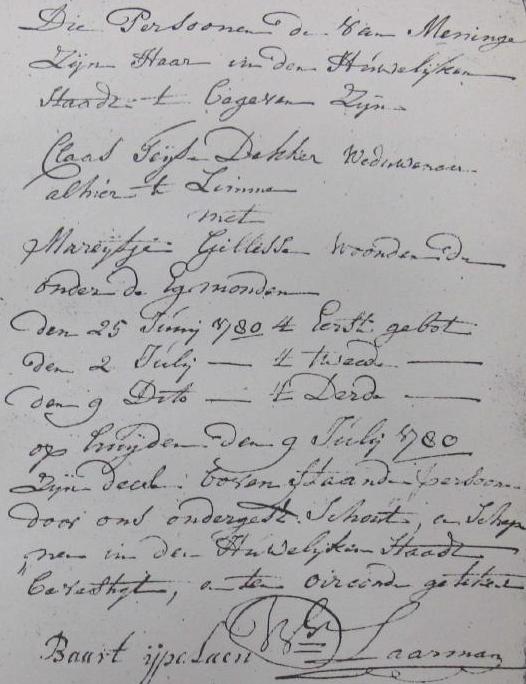 Die Persoonen de van Meninge
Zijn Haar in den Huwelijken
Staadt t begeven Zijn
Claas Teijse Dekker Weduwenaar
alhier t Limmen
met
Mareijtje Gillesse woonden de
onder de Egmonden
den 25 Junij 1780 t Eerst gebot
den 2 Julij — t tweede —
den 9 Dito — t Derde —
op huijden den 9 Julij 1780
Zijn deese boven staande persoonen
door ons ondergest. Schout, en Schepe
nen in den Huwelijken Staadt
bevestigt, en ten oirconde geteken
Baart Wm Laarman